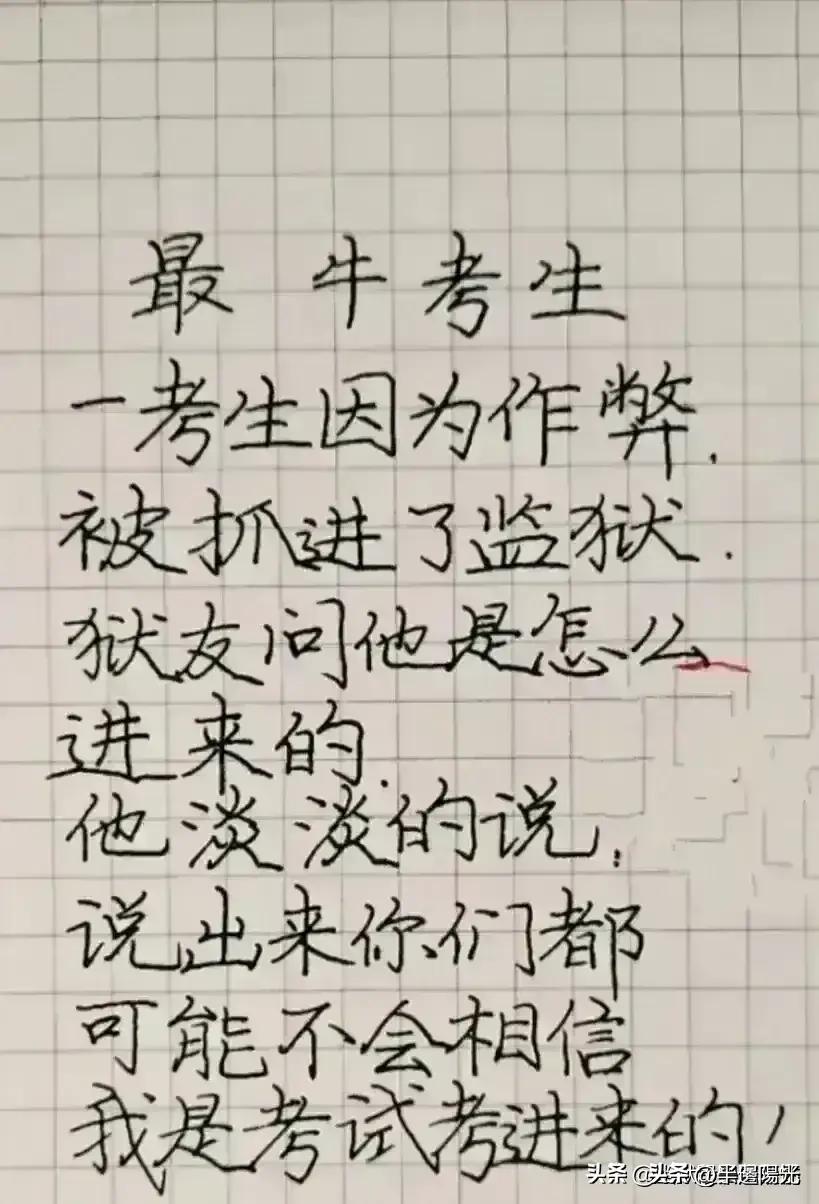 最牛考生
一考生因为作弊.
被抓进了监狱.
狱友问他是怎么
进来的.
他淡淡的说:
说出来你们都
可能不会相信
我是考试考进来的!